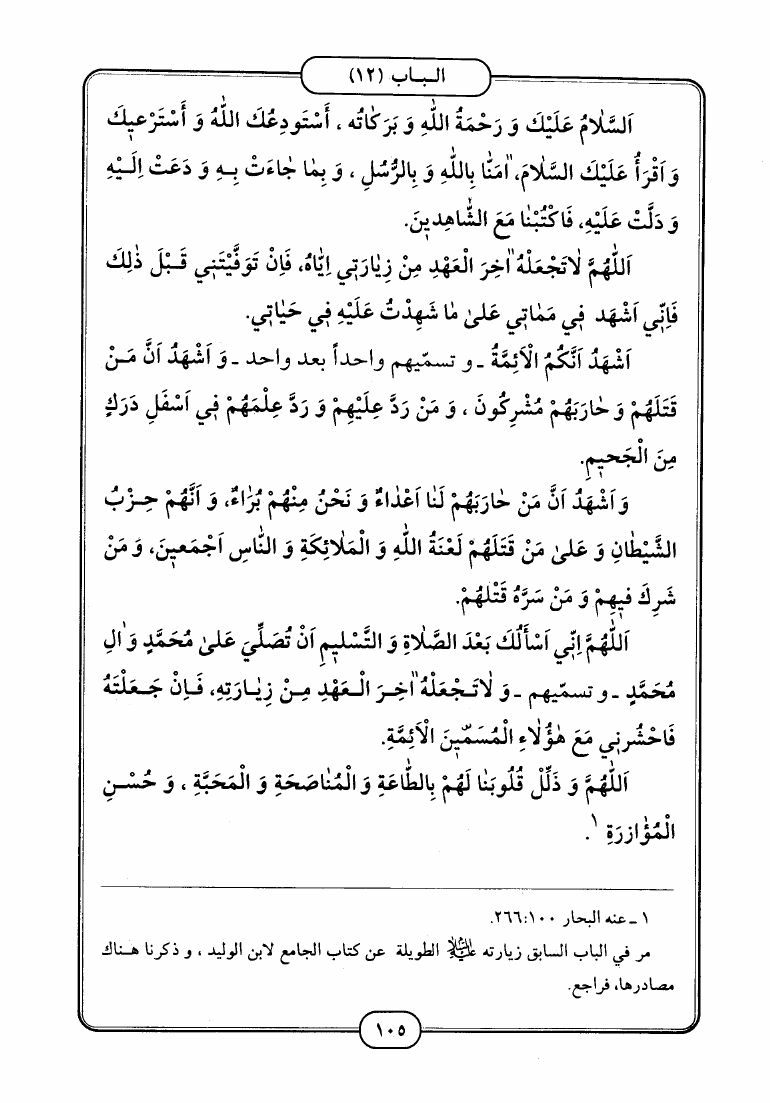 الباب (١٢)
اَلسَّلٰامُ عَلَيْكَ وَ رَحْمَةُ اللّٰهِ وَ بَرَكٰاتُه ، أَسْتَودِعُكَ اللّٰهُ وَ أَسْتَرْعيٖكَ
وَ اَقْرَأُ عَلَيْكَ السَّلٰامَ، اٰمَنّٰا بِاللّٰهِ وَ بِالرُّسُلِ ، وَ بِمٰا جٰاءَتْ بِهِ وَ دَعَتْ اِلَيْهِ
وَ دَلَّتْ عَلَيْهِ، فَاكْتُبْنٰا مَعَ الشّٰاهِديٖنَ.
اَللّٰهُمَّ لٰاتَجْعَلْهُ اٰخِرَ الْعَهْدِ مِنْ زِيٰارَتيٖ اِيّٰاهُ، فَاِنْ تَوَفَّيْتَنيٖ قَبْلَ ذٰلِكَ
فَاِنّيٖ اَشْهَد فيٖ مَمٰاتيٖ عَلىٰ مٰا شَهِدْتُ عَلَيْهِ فيٖ حَيٰاتيٖ.
اَشْهَدُ اَنَّكُمُ الْاَئِمَّةُ ـ و تسمّيهم واحداً بعد واحد ـ وَ اَشْهَدُ اَنَّ مَنْ
قَتَلَهُمْ وَ حٰارَبَهُمْ مُشْرِكُونَ ، وَ مَنْ رَدَّ عِلَيْهِمْ وَ رَدَّ عِلْمَهُمْ فيٖ اَسْفَلِ دَرَكٍ
مِنَ الْجَحيٖمِ.
وَ اَشْهَدُ اَنَّ مَنْ حٰارَبَهُمْ لَنٰا اَعْدٰاءٌ وَ نَحْنُ مِنْهُمْ بُرَاٰءٌ، وَ اَنَّهُمْ حِزْبُ
الشَّيْطٰانِ وَ عَلىٰ مَنْ قَتَلَهُمْ لَعْنَةُ اللّٰهِ وَ الْمَلٰائِكَةِ وَ النّٰاسِ اَجْمَعيٖنَ، وَ مَنْ
شَرِكَ فيٖهِمْ وَ مَنْ سَرَّهُ قَتْلُهُمْ.
اَللّٰهُمَّ اِنّيٖ اَسْأَلُكَ بَعْدَ الصَّلٰاةِ وَ التَّسْليٖمِ اَنْ تُصَلِّيَ عَلىٰ مُحَمَّدٍ وَ اٰلِ
مُحَمَّدٍ ـ و تسمّيهم ـ وَ لٰاتَجْعَلْهُ اٰخِرَ الْعَهْدِ مِنْ زِيٰارَتِهِ، فَاِنْ جَعَلْتَهُ
فَاحْشُرنيٖ مَعَ هٰؤُلٰاءِ الْمُسَمّيٖنَ الْاَئِمَّةِ.
اَللّٰهُمَّ وَ ذَلِّلْ قُلُوبَنٰا لَهُمْ بِالطّٰاعَةِ وَ الْمُنٰاصَحَةِ وَ الْمَحَبَّةِ ، وَ حُسْنِ
الْمُؤٰازرَةِ ١ .
١ ـ عنه البحار ١٠٠:٢٦٦.
مر في الباب السابق زيارته عليه السلام الطويلة عن كتاب الجامع لابن الوليد ، و ذكرنا هناك
مصادرها، فراجع.
١٠٥